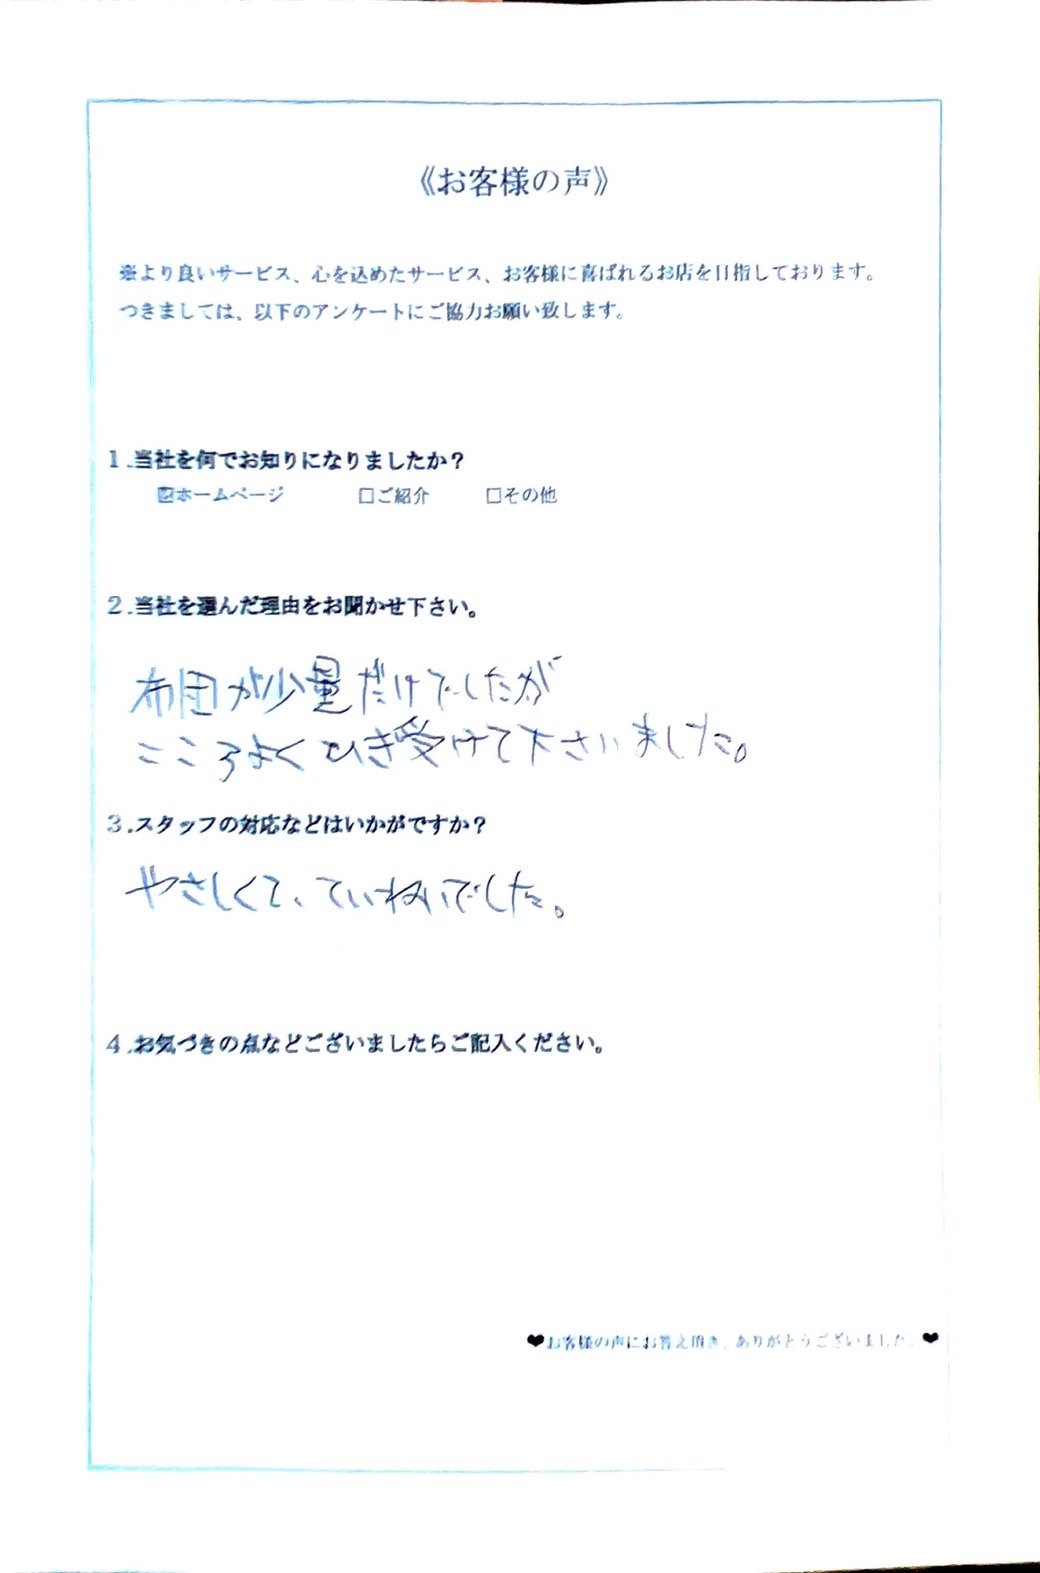 《お客様の声》
※より良いサービス、心を込めたサービス、お客様に喜ばれるお店を目指しております。
つきましては、以下のアンケートにご協力お願い致します。
1.当社を何でお知りになりましたか？
☑ホームページ □ご紹介 □その他
2.当社を選んだ理由をお聞かせ下さい。
布団が少量だけでしたが
こころよくひき受けて下さいました。
3.スタッフの対応などはいかがですか？
やさしくて、ていねいでした。
4.お気づきの点などございましたらご記入ください。
❤お客様の声にお答え頂き、ありがとうございました。❤